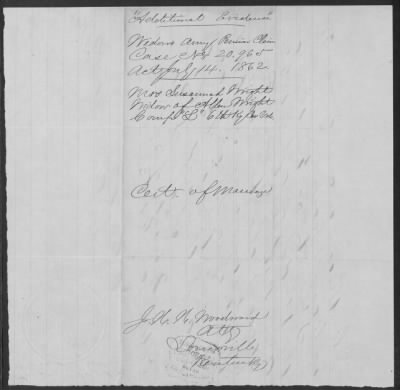 "Additional Evidence"
Widows Army Pension Claim
Case No 20.965
Act July 14. 1862
Mrs Susannah Wright
Widow of Allen Wright
Comp "L" 6th Ky Cav
Cert. of Marriage
J. H. H. Woodward
Atty
Louisville
Kentucky